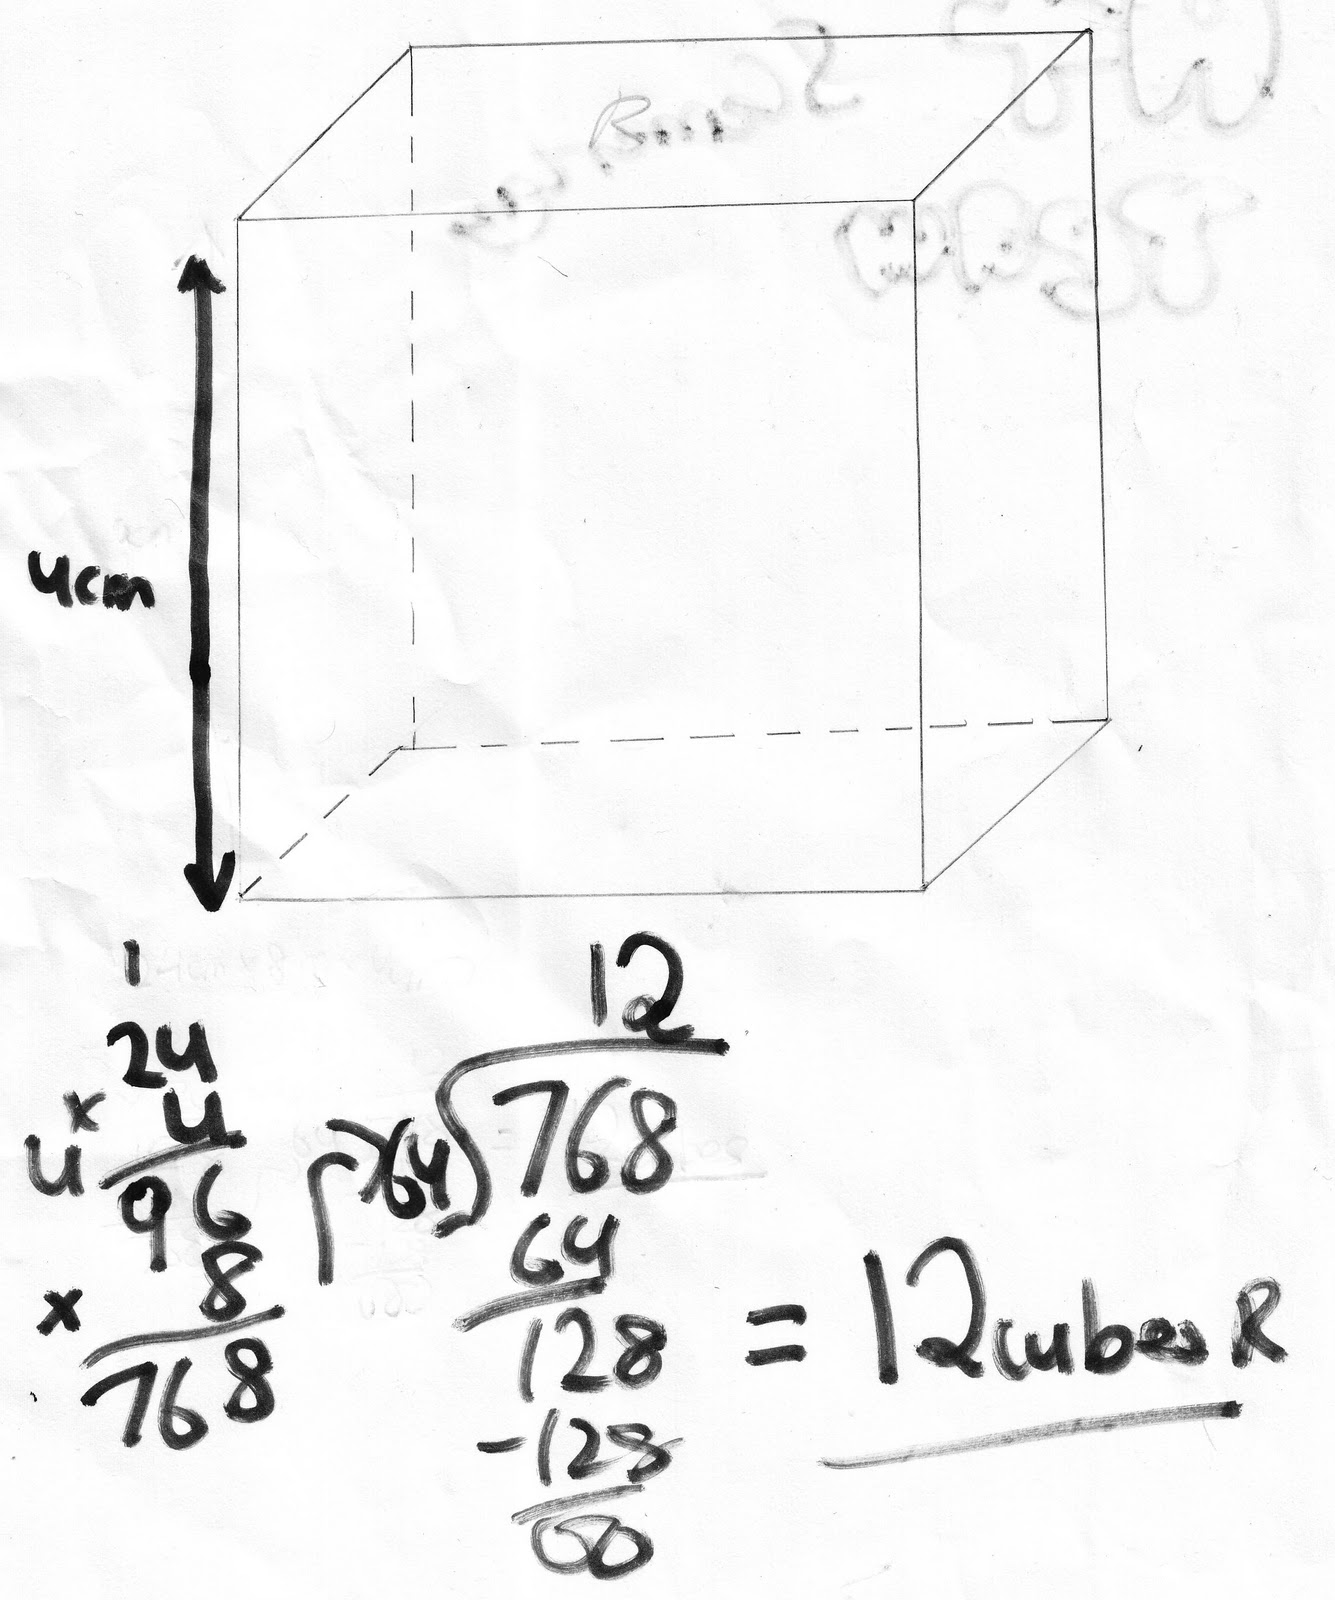 4cm
1
24
x 4
4
96
x 8
768
12
64 768
64
128
-128
00
= 12 cubes R